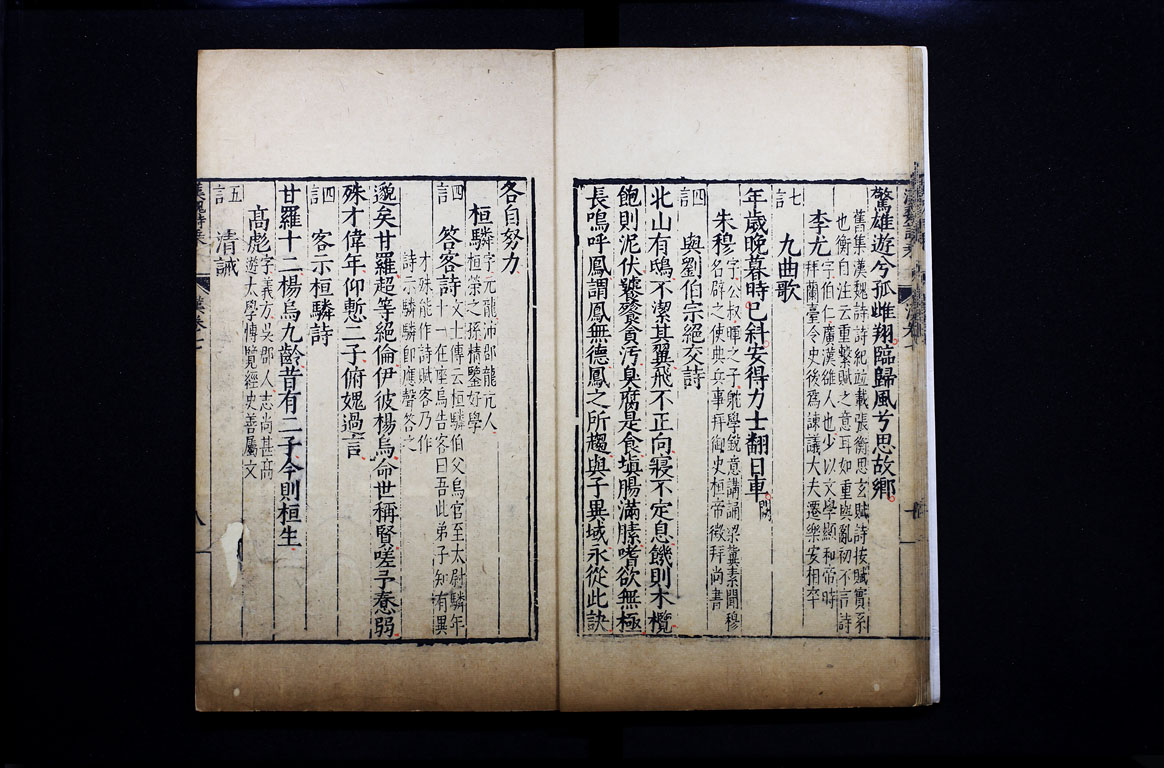 驚雄遊兮孤雌翔臨歸風兮思故鄉
舊集漢魏詩詩紀竝載張衡思玄賦詩按賦實系
也衡自注云重繫賦之意耳如重與亂初不言詩
李尤字伯仁廣漢雒人也少以文學顯和帝時
拜蘭臺令史後爲諫議大夫遷樂安相卒
七言
九曲歌
年歲晚暮時已斜安得力士翻日車
朱穆字公叔暉之子躭學銳意講誦梁冀素聞穆
名辟之使典兵事拜御史桓帝徵拜尚書
四言
與劉伯宗絕交詩
北山有鴟不潔其翼飛不正向寢不定息饑則木欖
飽則泥伏饕餮貪汚臭腐是食塡腸滿膆嗜欲無極
長鳴呼鳳謂鳳無德鳳之所趨與子異域永從此訣
各自努力
桓驎字元龍沛郡龍亢人
桓榮之孫精鑒好學
四言
答客詩文士傳云桓驎伯父烏官至太尉驎年
十一在座烏告客曰吾此弟子知有異
才殊能作詩賦客乃作
詩示驎驎卽應聲答之
邈矣甘羅超等絕倫伊彼楊烏命世稱賢嗟予惷弱
殊才偉年仰慙二子俯媿過言
四言
客示桓驎詩
甘羅十二楊烏九齡昔有二子今則桓生
高彪字義方吳郡人志尚甚高
遊太學博覽經史善屬文
五言
清誡